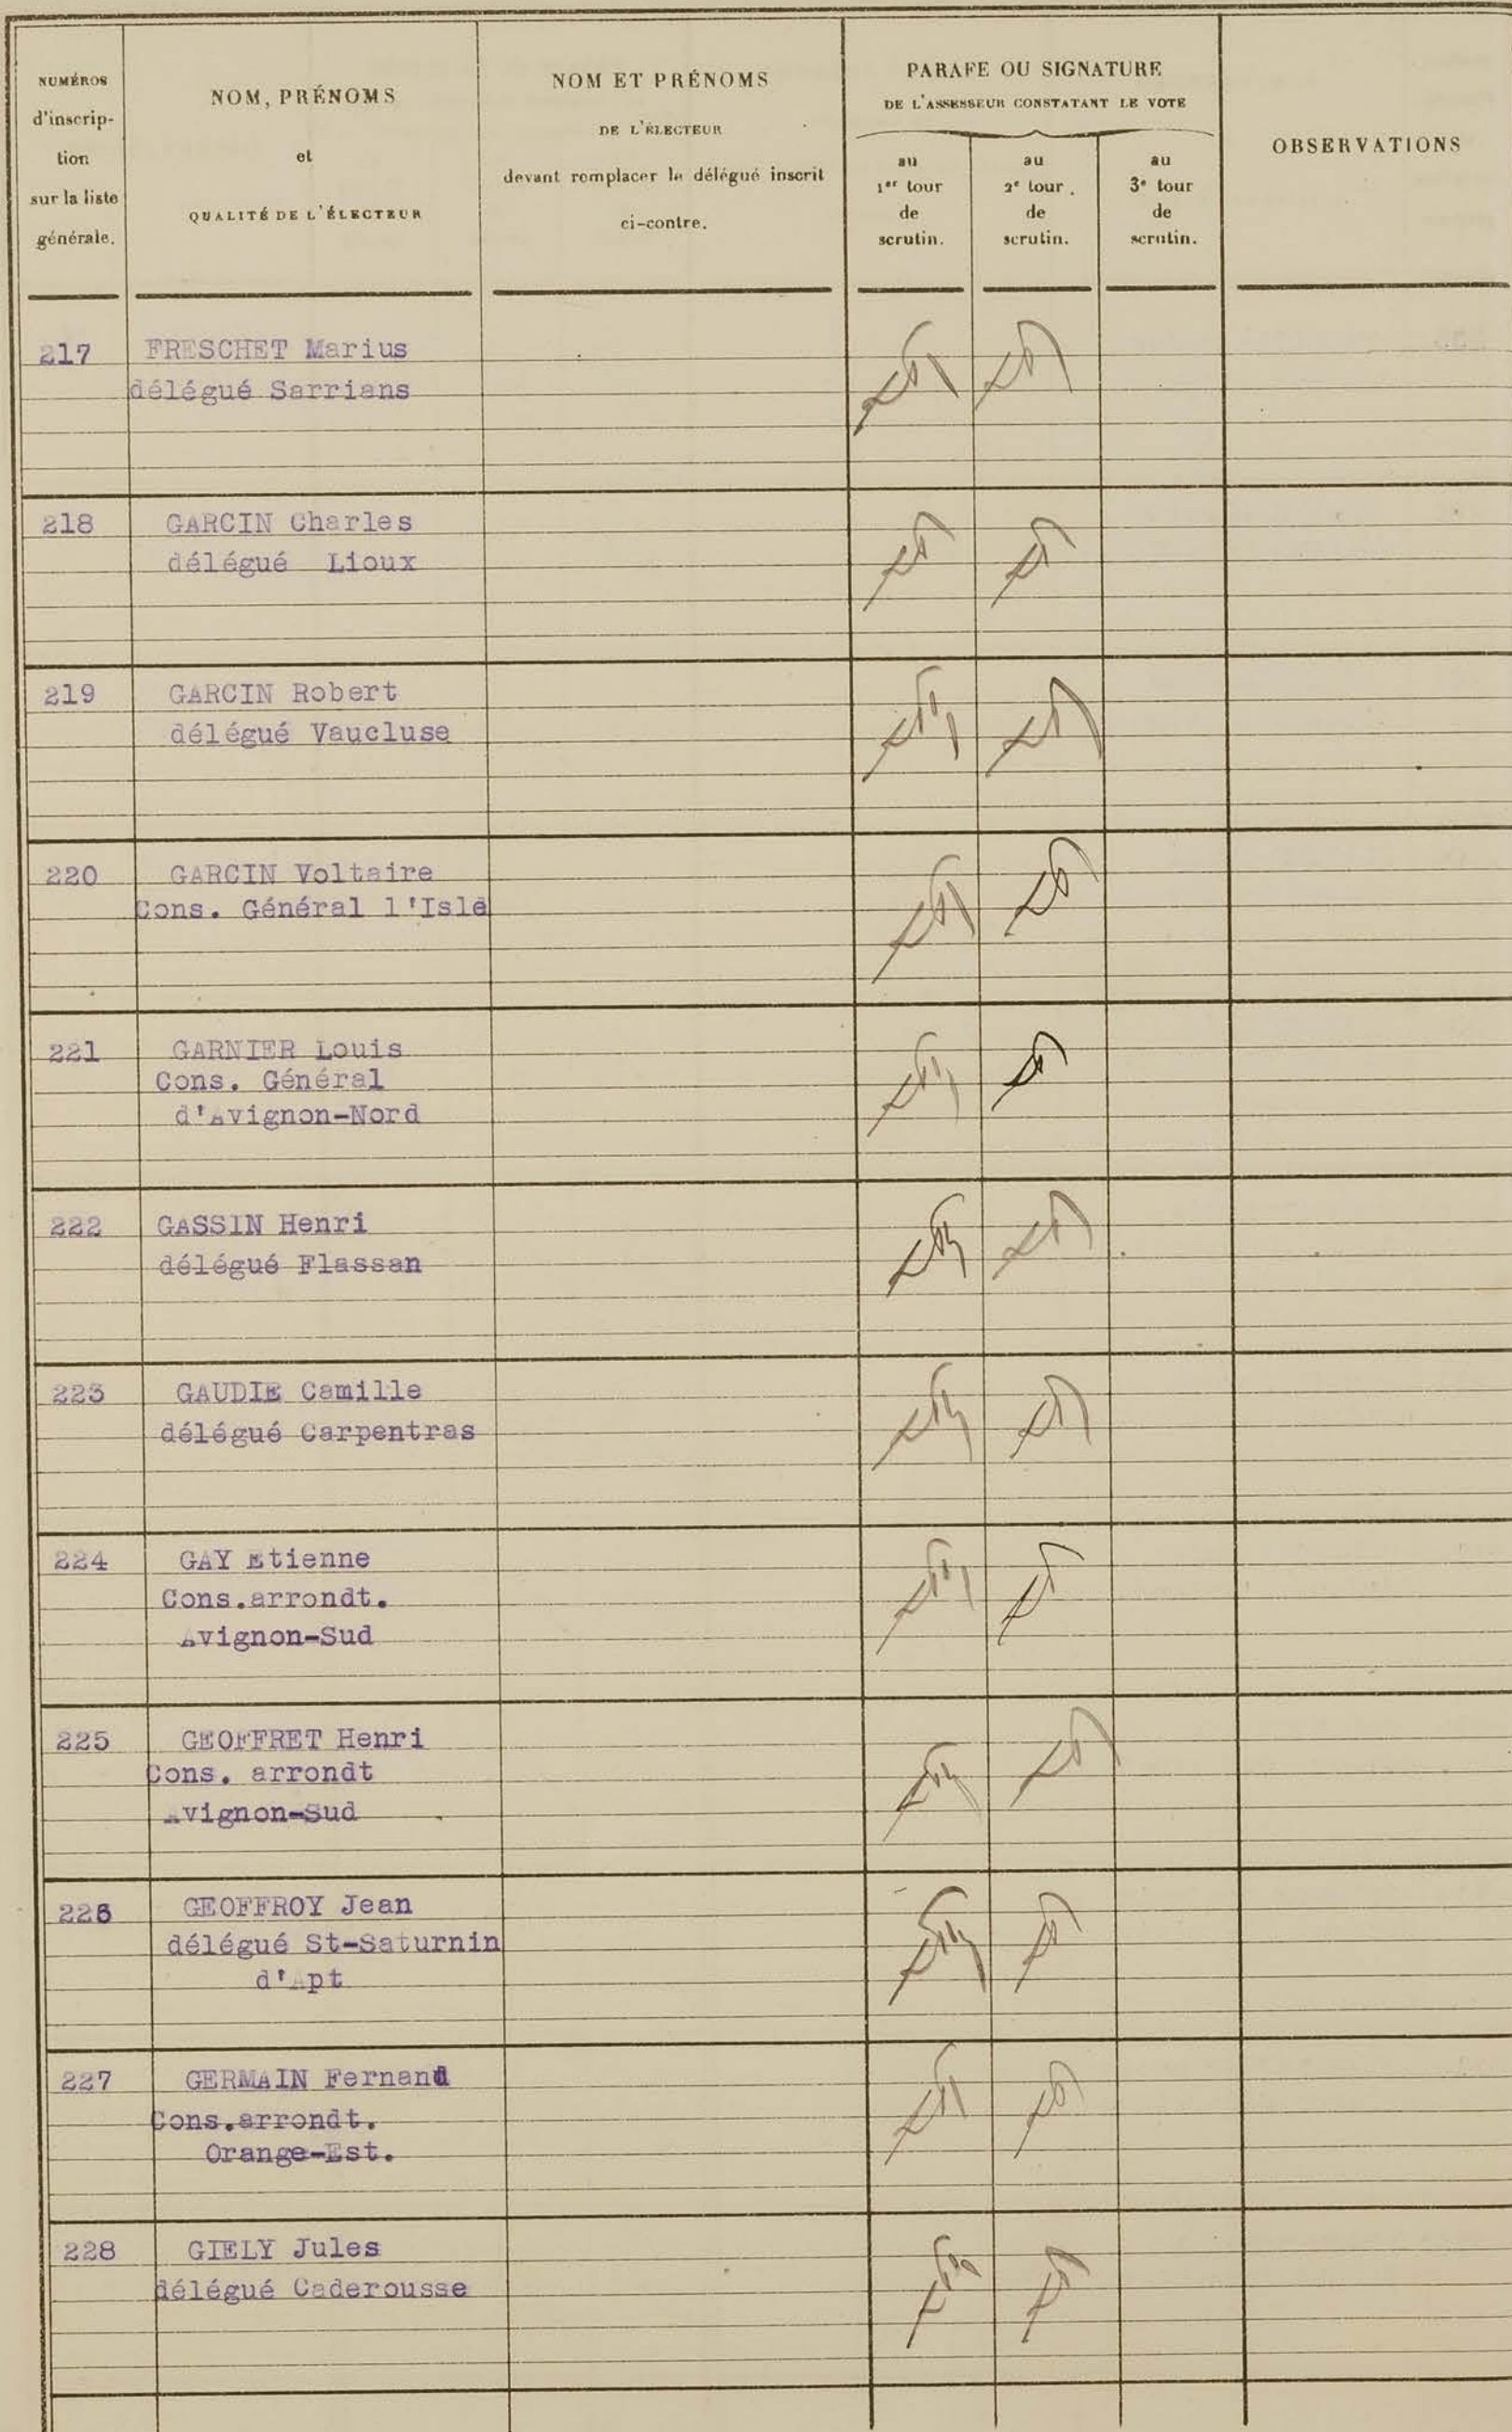 NUMÉROS
d'inscrip-
tion
sur la liste
générale.
NOM, PRÉNOMS
et
QUALITÉ DE L'ÉLECTEUR
NOM ET PRÉNOMS
DE L'ÉLECTEUR
devant remplacer le délégué inscrit
ci-contre.
PARAFE OU SIGNATURE
DE L'ASSESSEUR CONSTATANT LE VOTE
au
1er tour
de
scrutin.
au
2e tour.
de
scrutin.
au
3e tour
de
scrutin.
OBSERVATIONS
217 FRESCHET Marius
délégué Sarrians
218 GARCIN Charles
délégué Lioux
219 GARCIN Robert
délégué Vaucluse
220 GARCIN Voltaire
Cons. Général l'Isle
221 GARNIER Louis
Cons. Général
d'Avignon-Nord
222 GASSIN Henri
délégué Flassan
223 GAUDIE Camille
délégué Carpentras
224 GAY Etienne
Cons.arrondt.
Avignon-Sud
225 GEOFFRET Henri
Cons. arrondt
Avignon-Sud
226 GEOFFROY Jean
délégué St-Saturnin
d'Apt
227 GERMAIN Fernand
Cons.arrondt.
Orange-Est.
228 GIELY Jules
délégué Caderousse